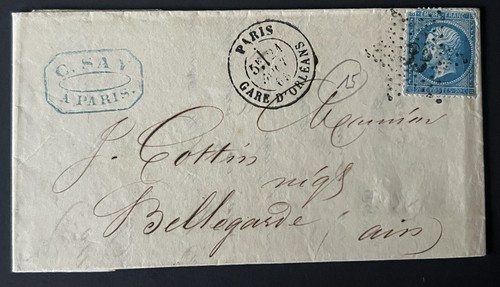 C. SAY
A PARIS.
PARIS
5E
21
GARE D'ORLÉANS
15
Monsieur
J. Cottin
nég
Bellegarde
ain